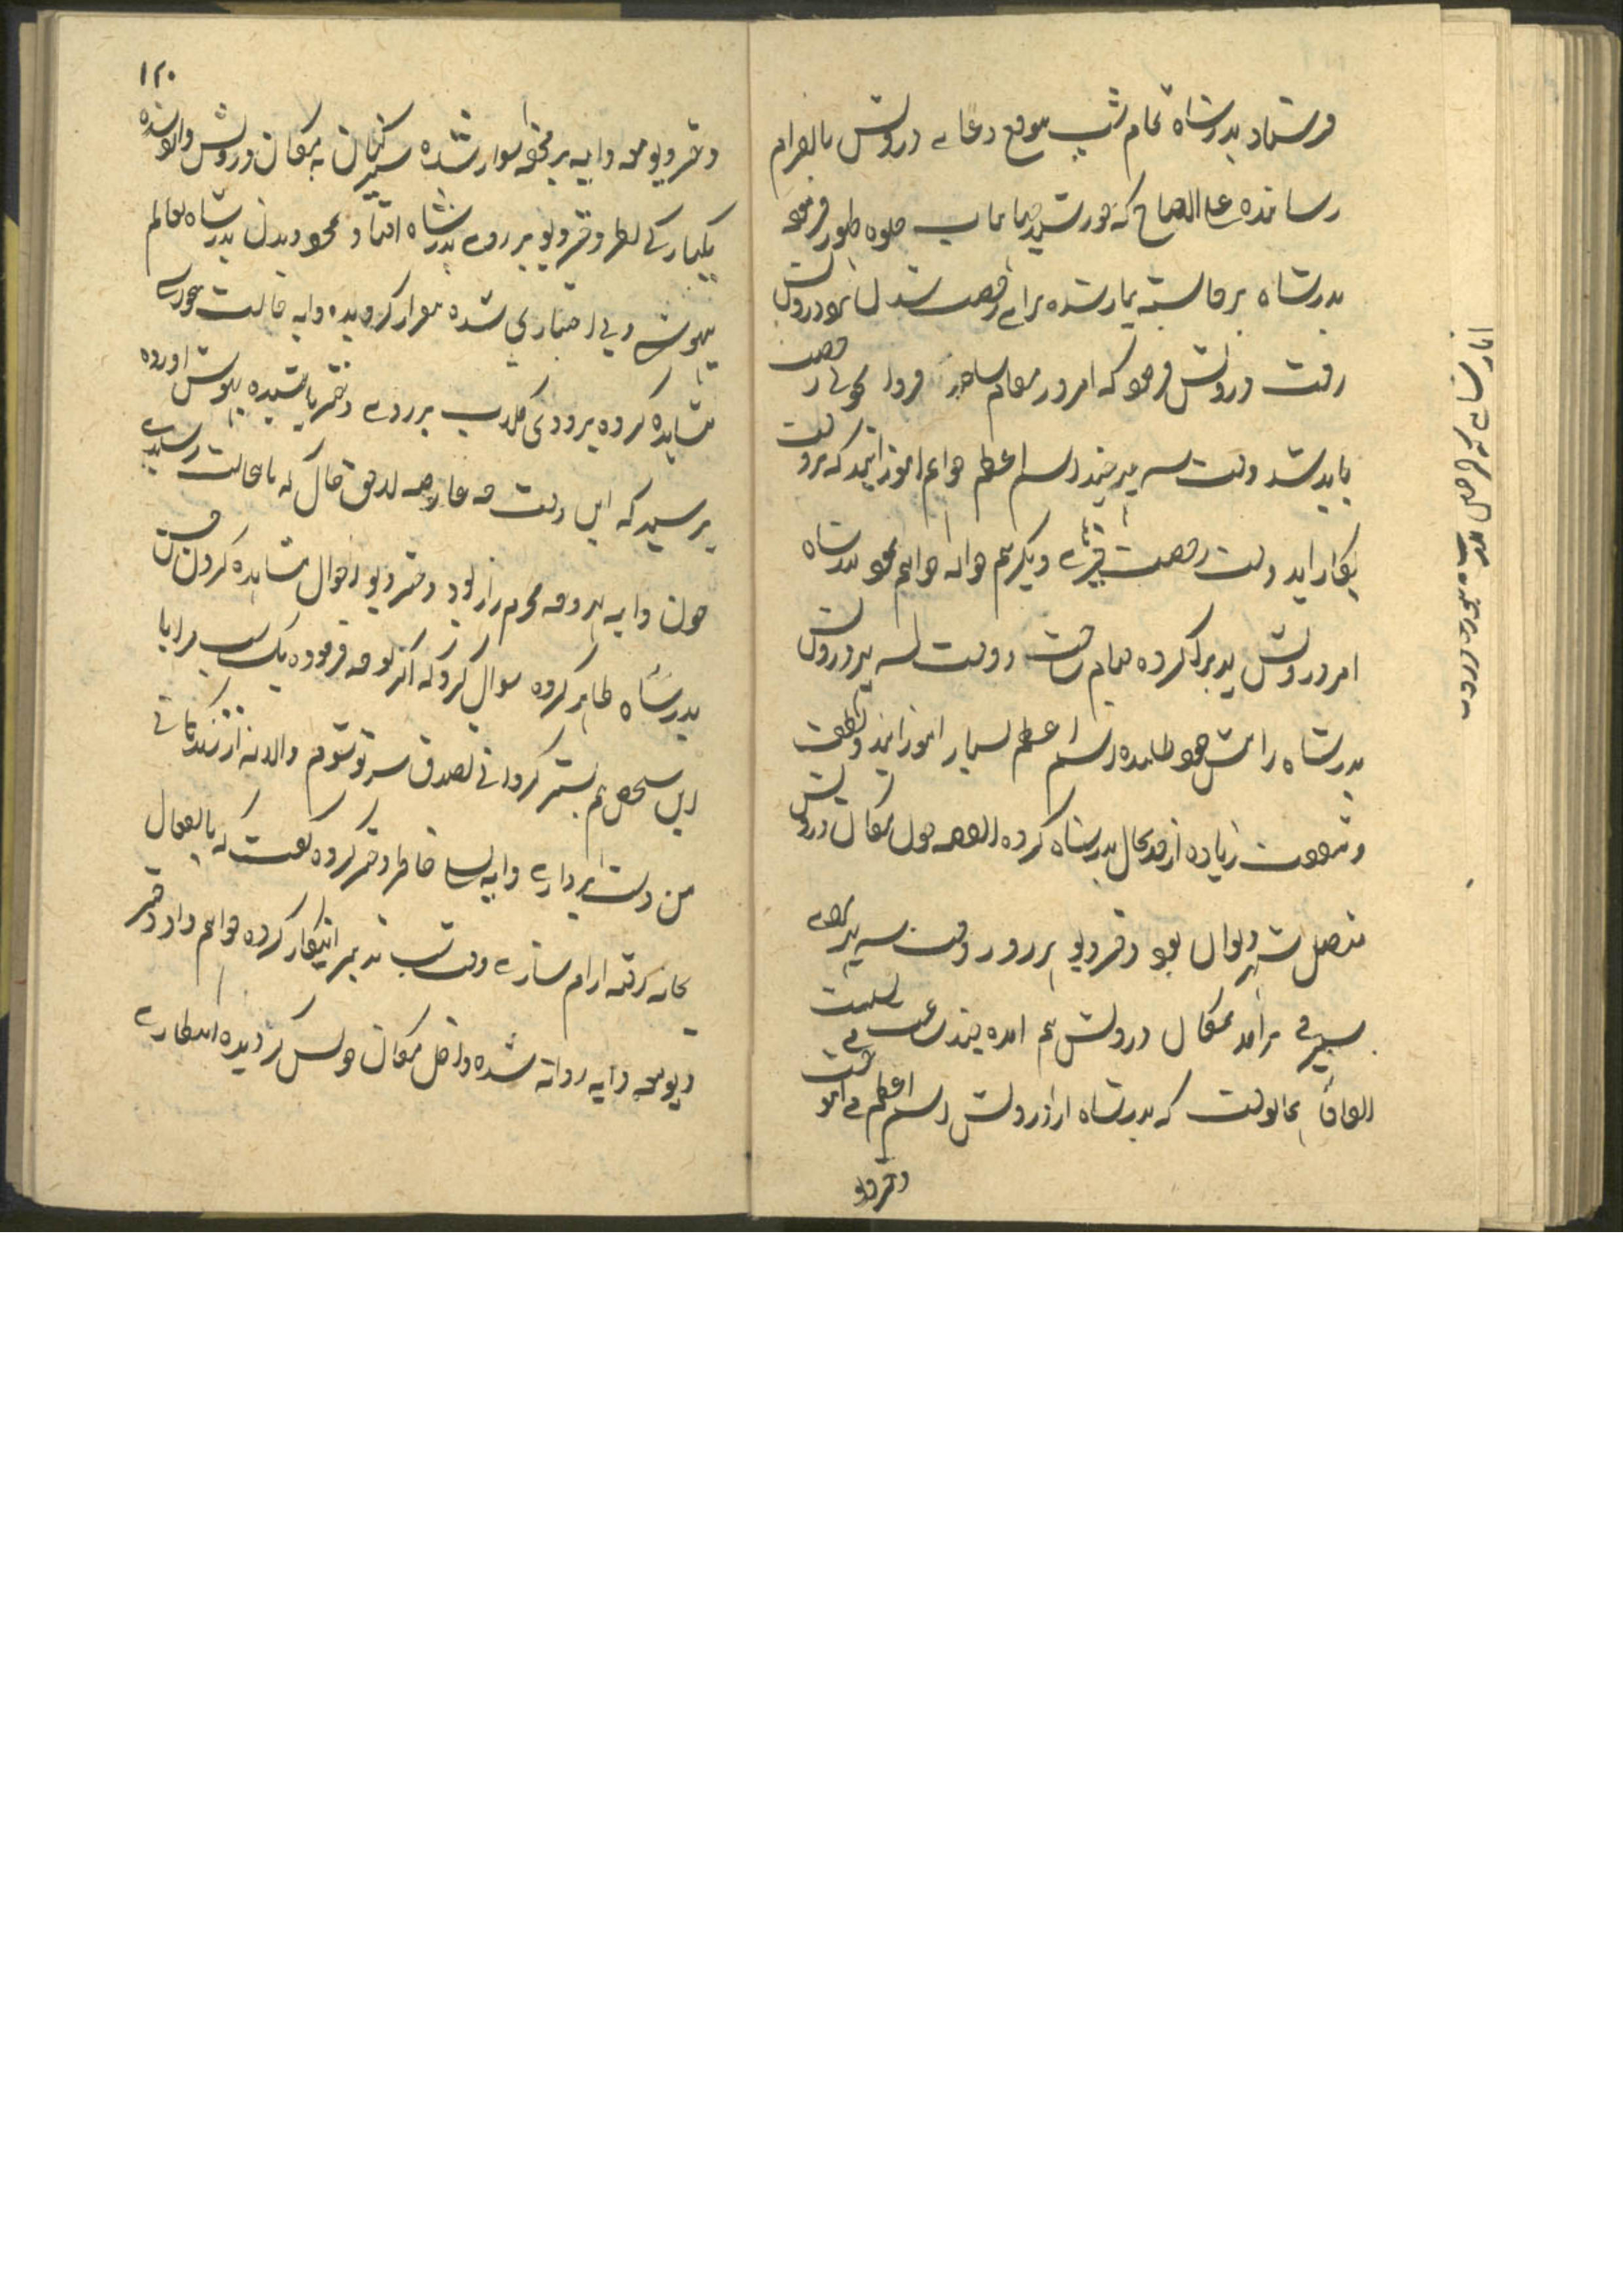 فرستاد بدرشاه تمام شب موقع دعای درویش بالفرام
رسانده علی الصباح که خورشید جهانتاب جلوه ظهور فرمود
بدرشاه برخاسته تیار شده برای رخصت شدن نزد درویش
رفت درویش فرمود که امروز مقام سازید فردا بخوشی رخصت
باید شد وقت سه پهر چند اسم اعظم خواهم آموزانید که بروقت
بکار آید وقت رخصت چیزهای دیگر هم حواله خواهم نمود بدرشاه
امر درویش پذیرا کرده مقام ساخت و وقت سه پهر درویش
بدرشاه را پیش خود طلبیده اسم اعظم بسیار آموزانید و لطف
و شفقت زیاده از حد بحال بدرشاه کرده القصه چون مکان درویش
متصل شهر دیوان بود دختر دیو هر روز وقت سه پهر برای
سیر می برآمد بمکان درویش هم آمده چند ساعت می نشست
اتفاقاً همانوقت که بدرشاه از درویش اسم اعظم می آموخت
دختر دیو
۱۲۰
دختر دیو معه دایه بر تخت سوار شده سیرکنان به مکان درویش وارد شده
یکبارگی نظر دختر دیو بر روی بدرشاه افتاد و بمجرد دیدن بدرشاه بعالم
بیهوشی و بی اختیاری شده بیقرار گردیده دایه حالت دختر
مشاهده کرده بزودی گلاب بر روی دختر پاشیده بهوش آورده
پرسید که این وقت چه عارضه لاحق حال که باینحالت رسیدی
چون دایه هر وقت محرم راز بود دختر دیو احوال مشاهده کردن حسن
بدرشاه ظاهر کرده سوال کرد که اگر توجه فرموده یک شب مرا با
این شخص هم بستر گردانی تصدق سر تو شوم والا نه از زندگانی
من دست برداری دایه تسلی خاطر دختر کرده گفت که بالفعال
بخانه رفته آرام سازی وقت شب تدبیر اینکار کرده خواهم داد دختر
دیو معه دایه روانه شده داخل مکان خویش گردیده انتظاری